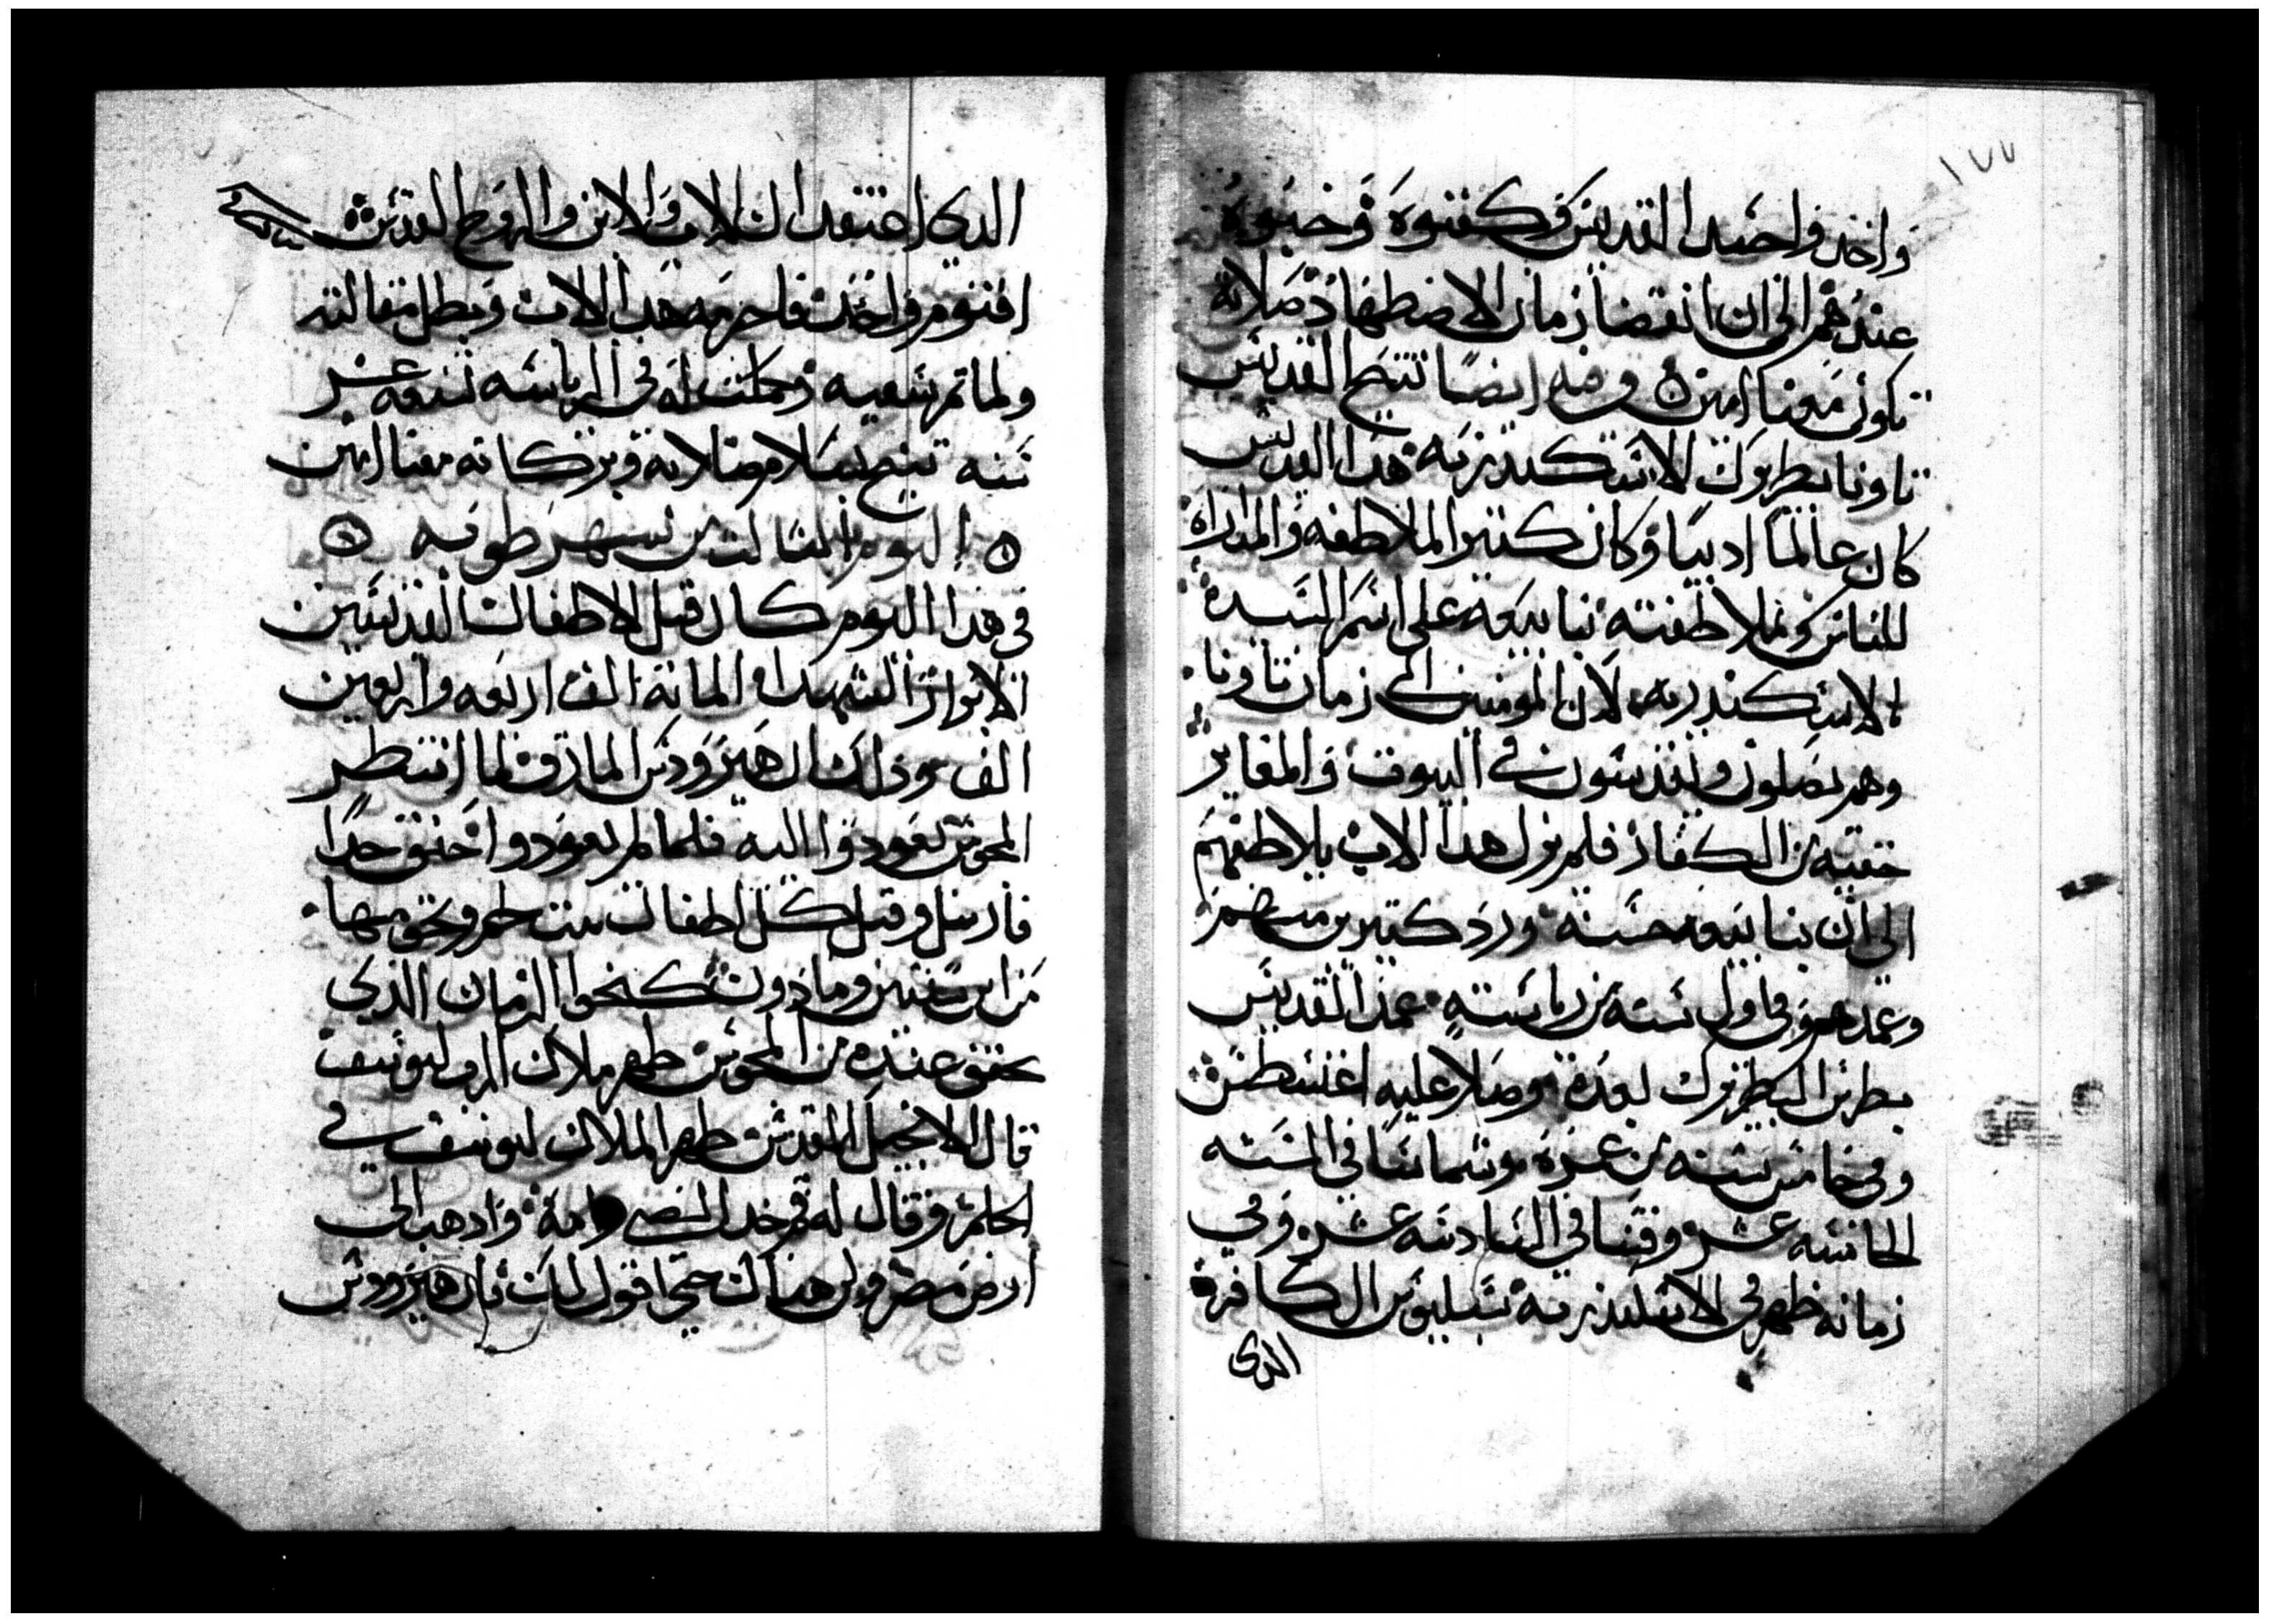 ١٧٧
واخدوا جسد القديس وكفنوه وخبوه
عندهم الى ان انقضا زمان الاضطهاد صلاته
تكون معنا امين وفيه ايضا تنيح القديس
تاونا بطريرك الاسكندريه هدا القديس
كان عالما اديبا وكان كتير الملاطفه والمداراه
للناس وبملاطفته بنا بيعه على اسم السيده
بالاسكندريه لان المومنين الى زمان تاونا
وهم يصلون ويقدسون في البيوت والمغاير
خفيه من الكفار فلم يزل هدا الاب يلاطفهم
الى ان بنا بيعه حسنه ورد كتير من منهم
وعمدهم وفي اول سنه من رياسته عمد القديس
بطرس البطريرك بعده وصلا عليه اغنسطس
وفي خامس سنه من عمره وشماسا في السنه
الخامسه عشر وقسا في السادسه عشر وفي
زمانه ظهر في الاسكندريه سبليوس الكافر
الدى
الدي اعتقد ان الاب والابن والروح القدس
اقنوم واحد فاحرمه هدا الاب وبطل مقالته
ولما تم سعيه وكملت له في الرياسه تسعه عشر
سنه تنيح بسلام صلاته وبركاته معنا امين
اليوم التالت من شهر طوبه
في هدا اليوم كان قتل الاطفال القديسين
الابرار الشهدا المايه الف اربعه واربعين
الف ودلك ان هيرودس المارق لما انتظر
المجوس ليعودوا اليه فلما لم يعودوا احنق جدا
فارسل وقتل كل اطفال بيت لحم وتخومها
من ابن سنتين وما دون كنحو الزمان الدي
تحقق عنده من المجوس ظهر ملاك الرب ليوسف
قال الانجيل المقدس ظهر الملاك ليوسف في
الحلم وقال له قم خد الصبي وامه وادهب الى
ارض مصر وكن هناك حتى اقول لك فان هيرودس